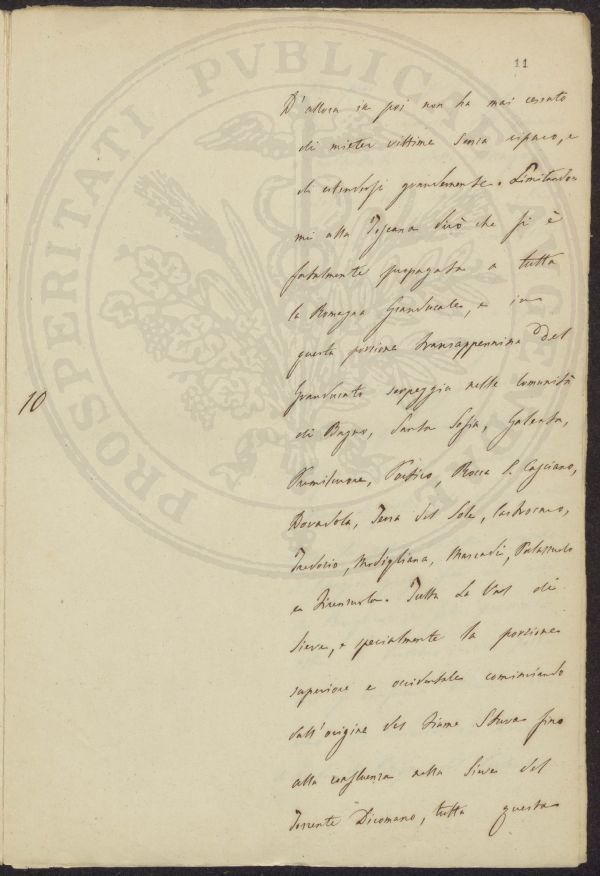 11
D'allora in poi non ha mai cessato
di mieter vittime senza riparo, e
di estendersi grandemente. Limitando=
mi alla Toscana dirò che si è
fatalmente propagata a tutta
la Romagna Granducale, e in
questa porzione transappennina del
Granducato serpeggia nelle Comunità
di Bagno, Santa Sofia, Galeata,
Premilcuore, Portico, Rocca S. Casciano,
Dovadola, Terra del Sole, Castrocaro,
10
Tredozio, Modigliana, Marradi, Palazzuolo
e Firenzuola. Tutta la Val di
Sieve, e specialmente la porzione
superiore e occidentale cominciando
dall'origine del Fiume Stura fino
alla confluenza nella Sieve del
Torrente Dicomano, tutta questa
PROSPERITATI PVBLICAE AVGENDAE